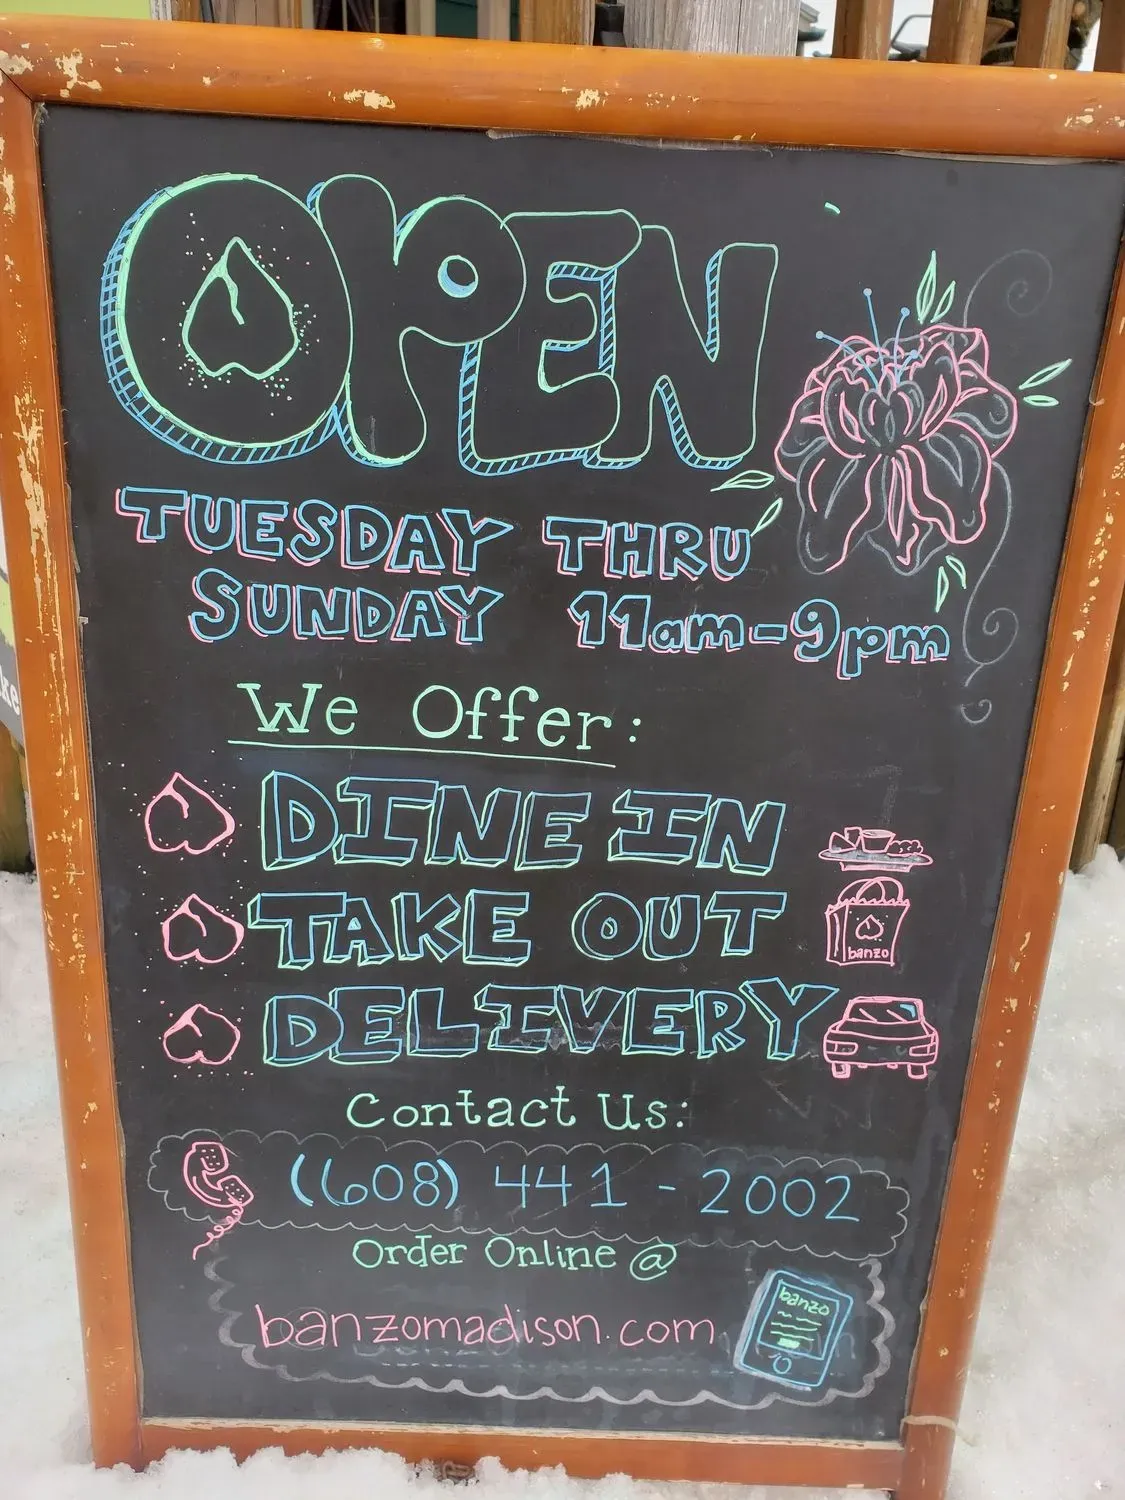 OPEN
TUESDAY THRU
SUNDAY 11am-9pm
We Offer:
DINE IN
TAKE OUT
banzo
DELIVERY
Contact Us:
(608) 441-2002
Order Online @
banzo
banzomadison.com